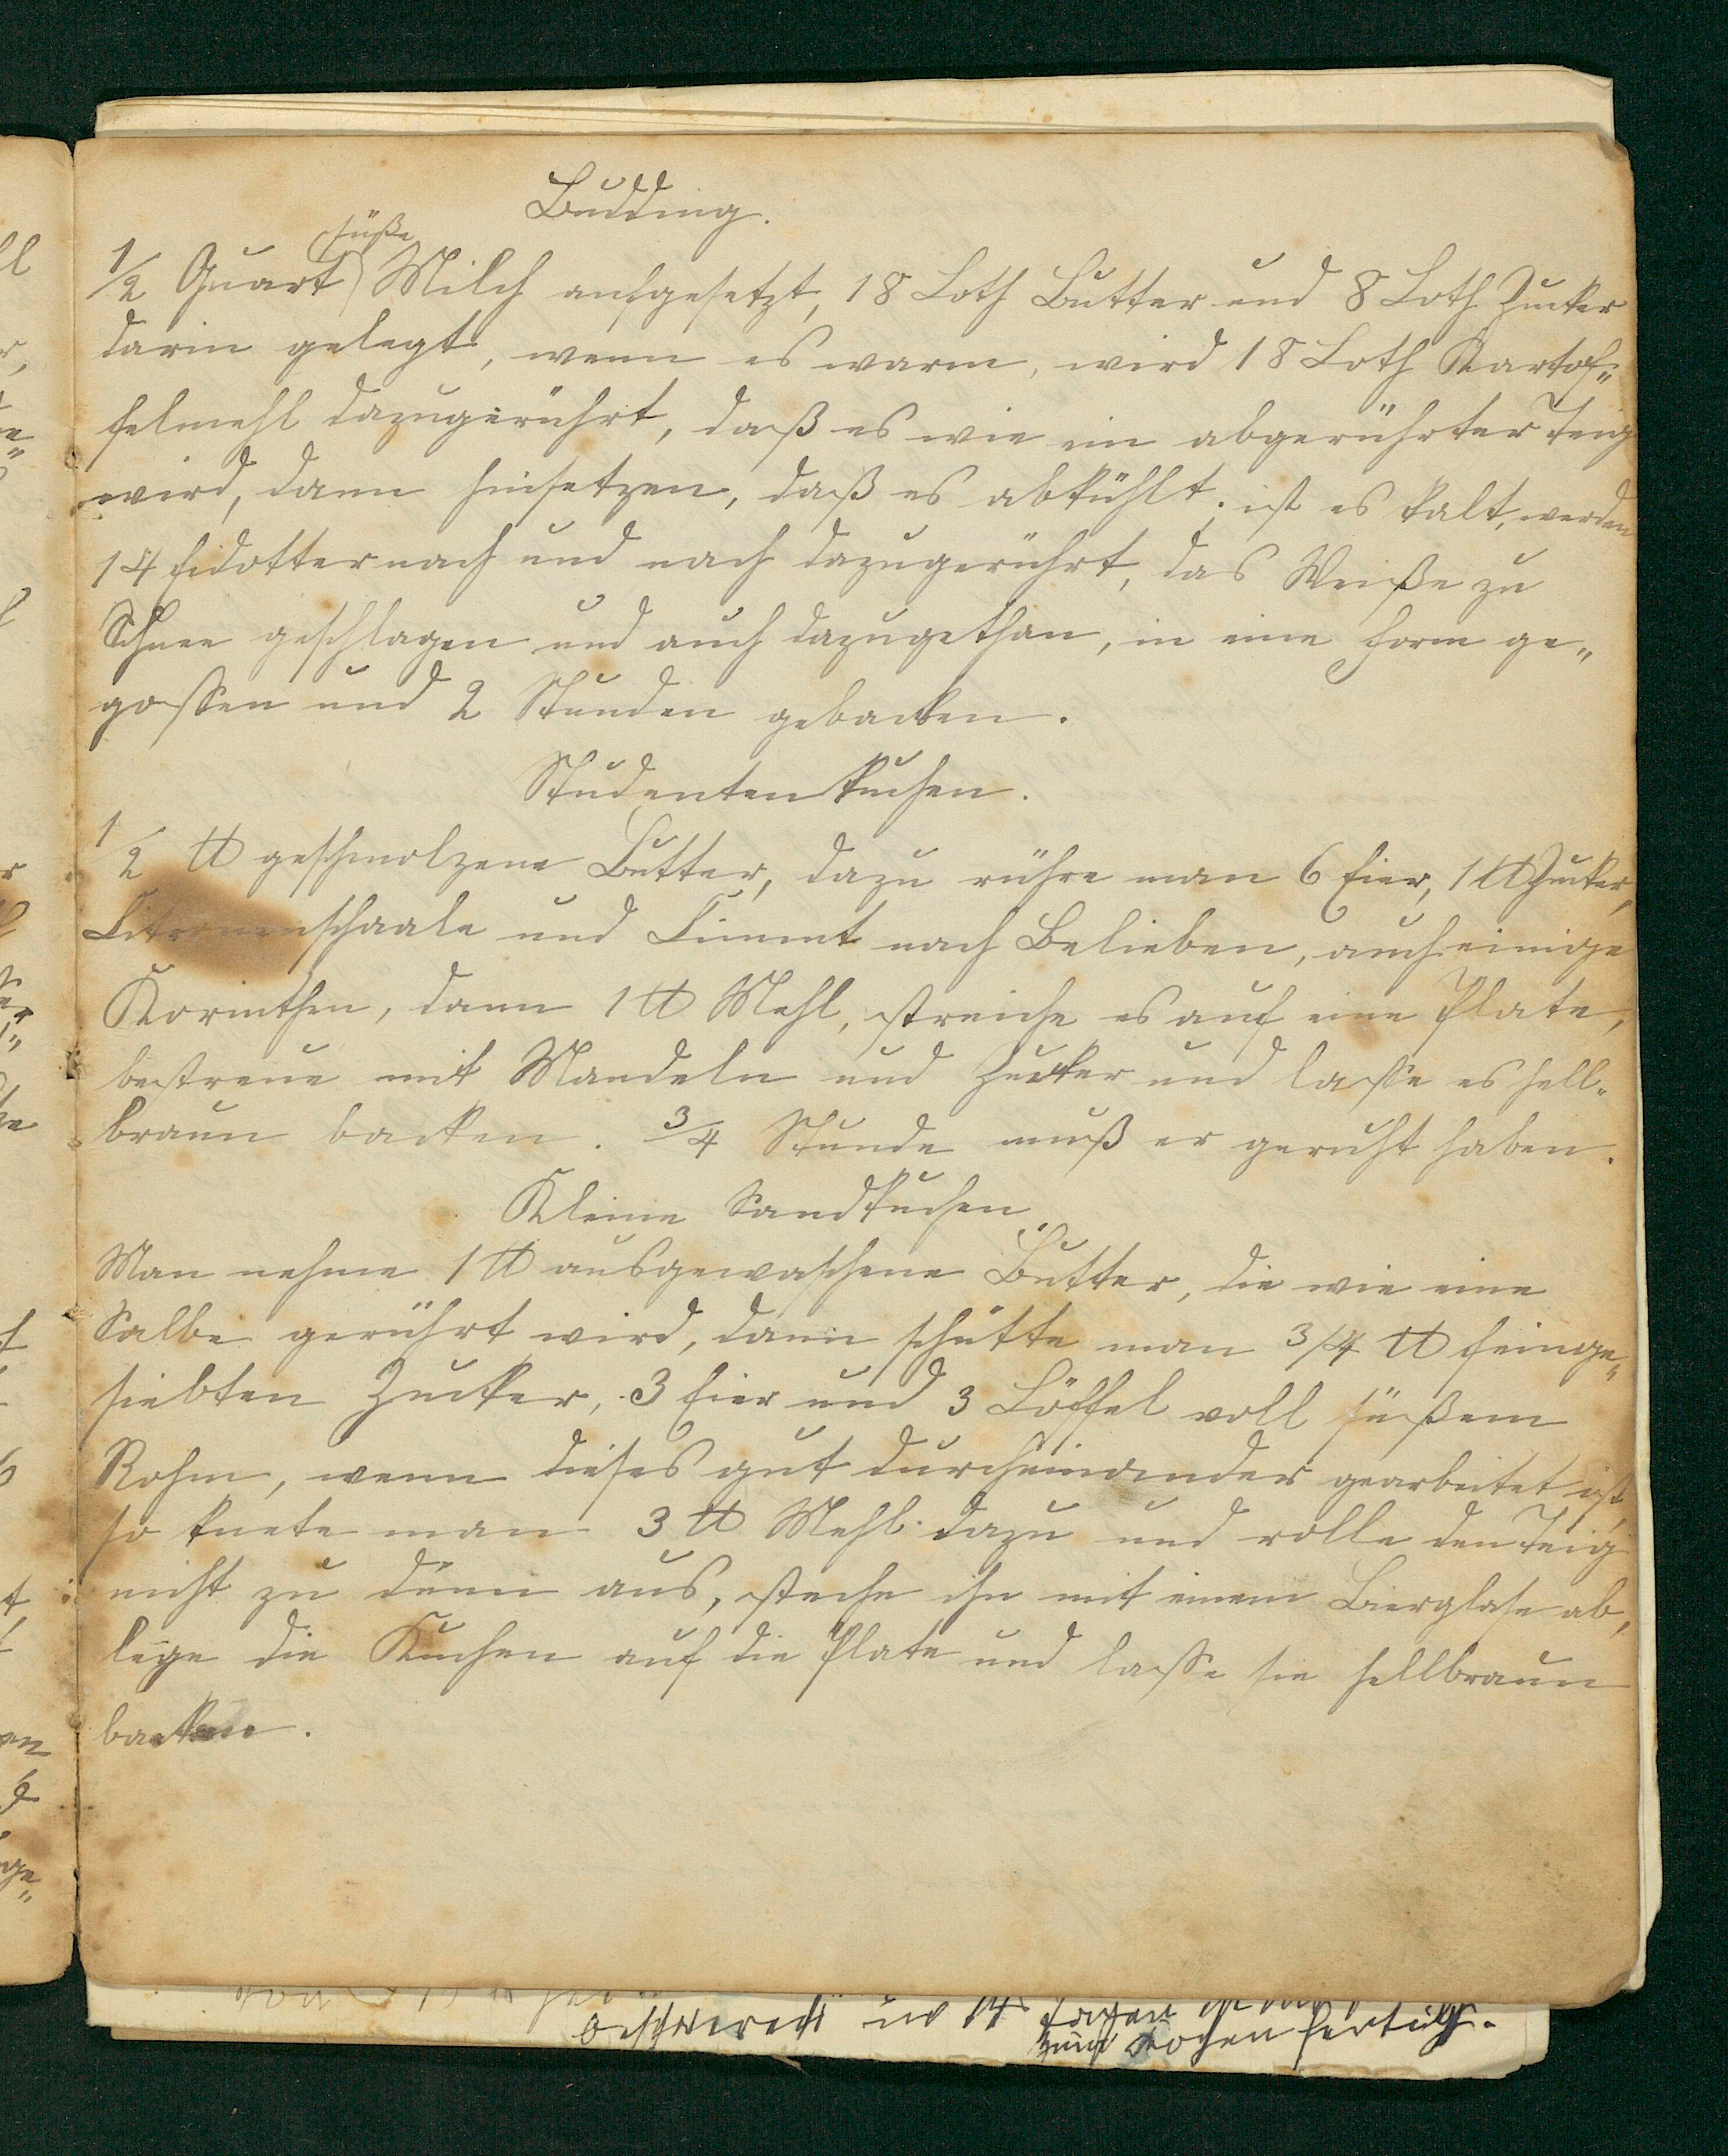 Budding.
süße
1/2 Quart Milch aufgesetzt, 18 Loth Butter und 8 Loth Zucker
darin gelegt, wenn es warm, wird 18 Loth Kartof„
felmehl dazugerührt, daß es wie ein abgerührter Teig
wird, dann hinsetzen, daß es abkühlt, ist es kalt, werden
14 Eidotter nach und nach dazugerührt, das Weiße zu
Schnee geschlagen und auch dazugethan, in eine Form ge„
gossen und 2 Stunden gebacken.
Studentenkuchen.
1/2 ℔ geschmolzene Butter, dazu rühre man 6 Eier, 1 ℔ Zucker,
Citronenschaale und Cimmt nach Belieben, auch einige
Korinthen, dann 1 ℔ Mehl, streiche es auf eine Plate,
bestreue mit Mandeln und Zucker und lasse es hell-
braun backen. 3/4 Stunde muß er geruht haben.
Kleine Sandkuchen
Man nehme 1 ℔ ausgewaschene Butter, die wie eine
Salbe gerührt wird, dann schütte man 3/4 ℔ feinge„
siebten Zucker, 3 Eier und 3 Löffel voll süßem
Rohm, wenn dieses gut durcheinander gearbeitet ist,
so knete man 3 ℔ Mehl dazu und rolle den Teig
nicht zu dünn aus, steche ihn mit einem Bierglase ab,
lege die Kuchen auf die Plate und lasse sie hellbraun
backen.
in 14 Tagen
zum Kochen fertig.